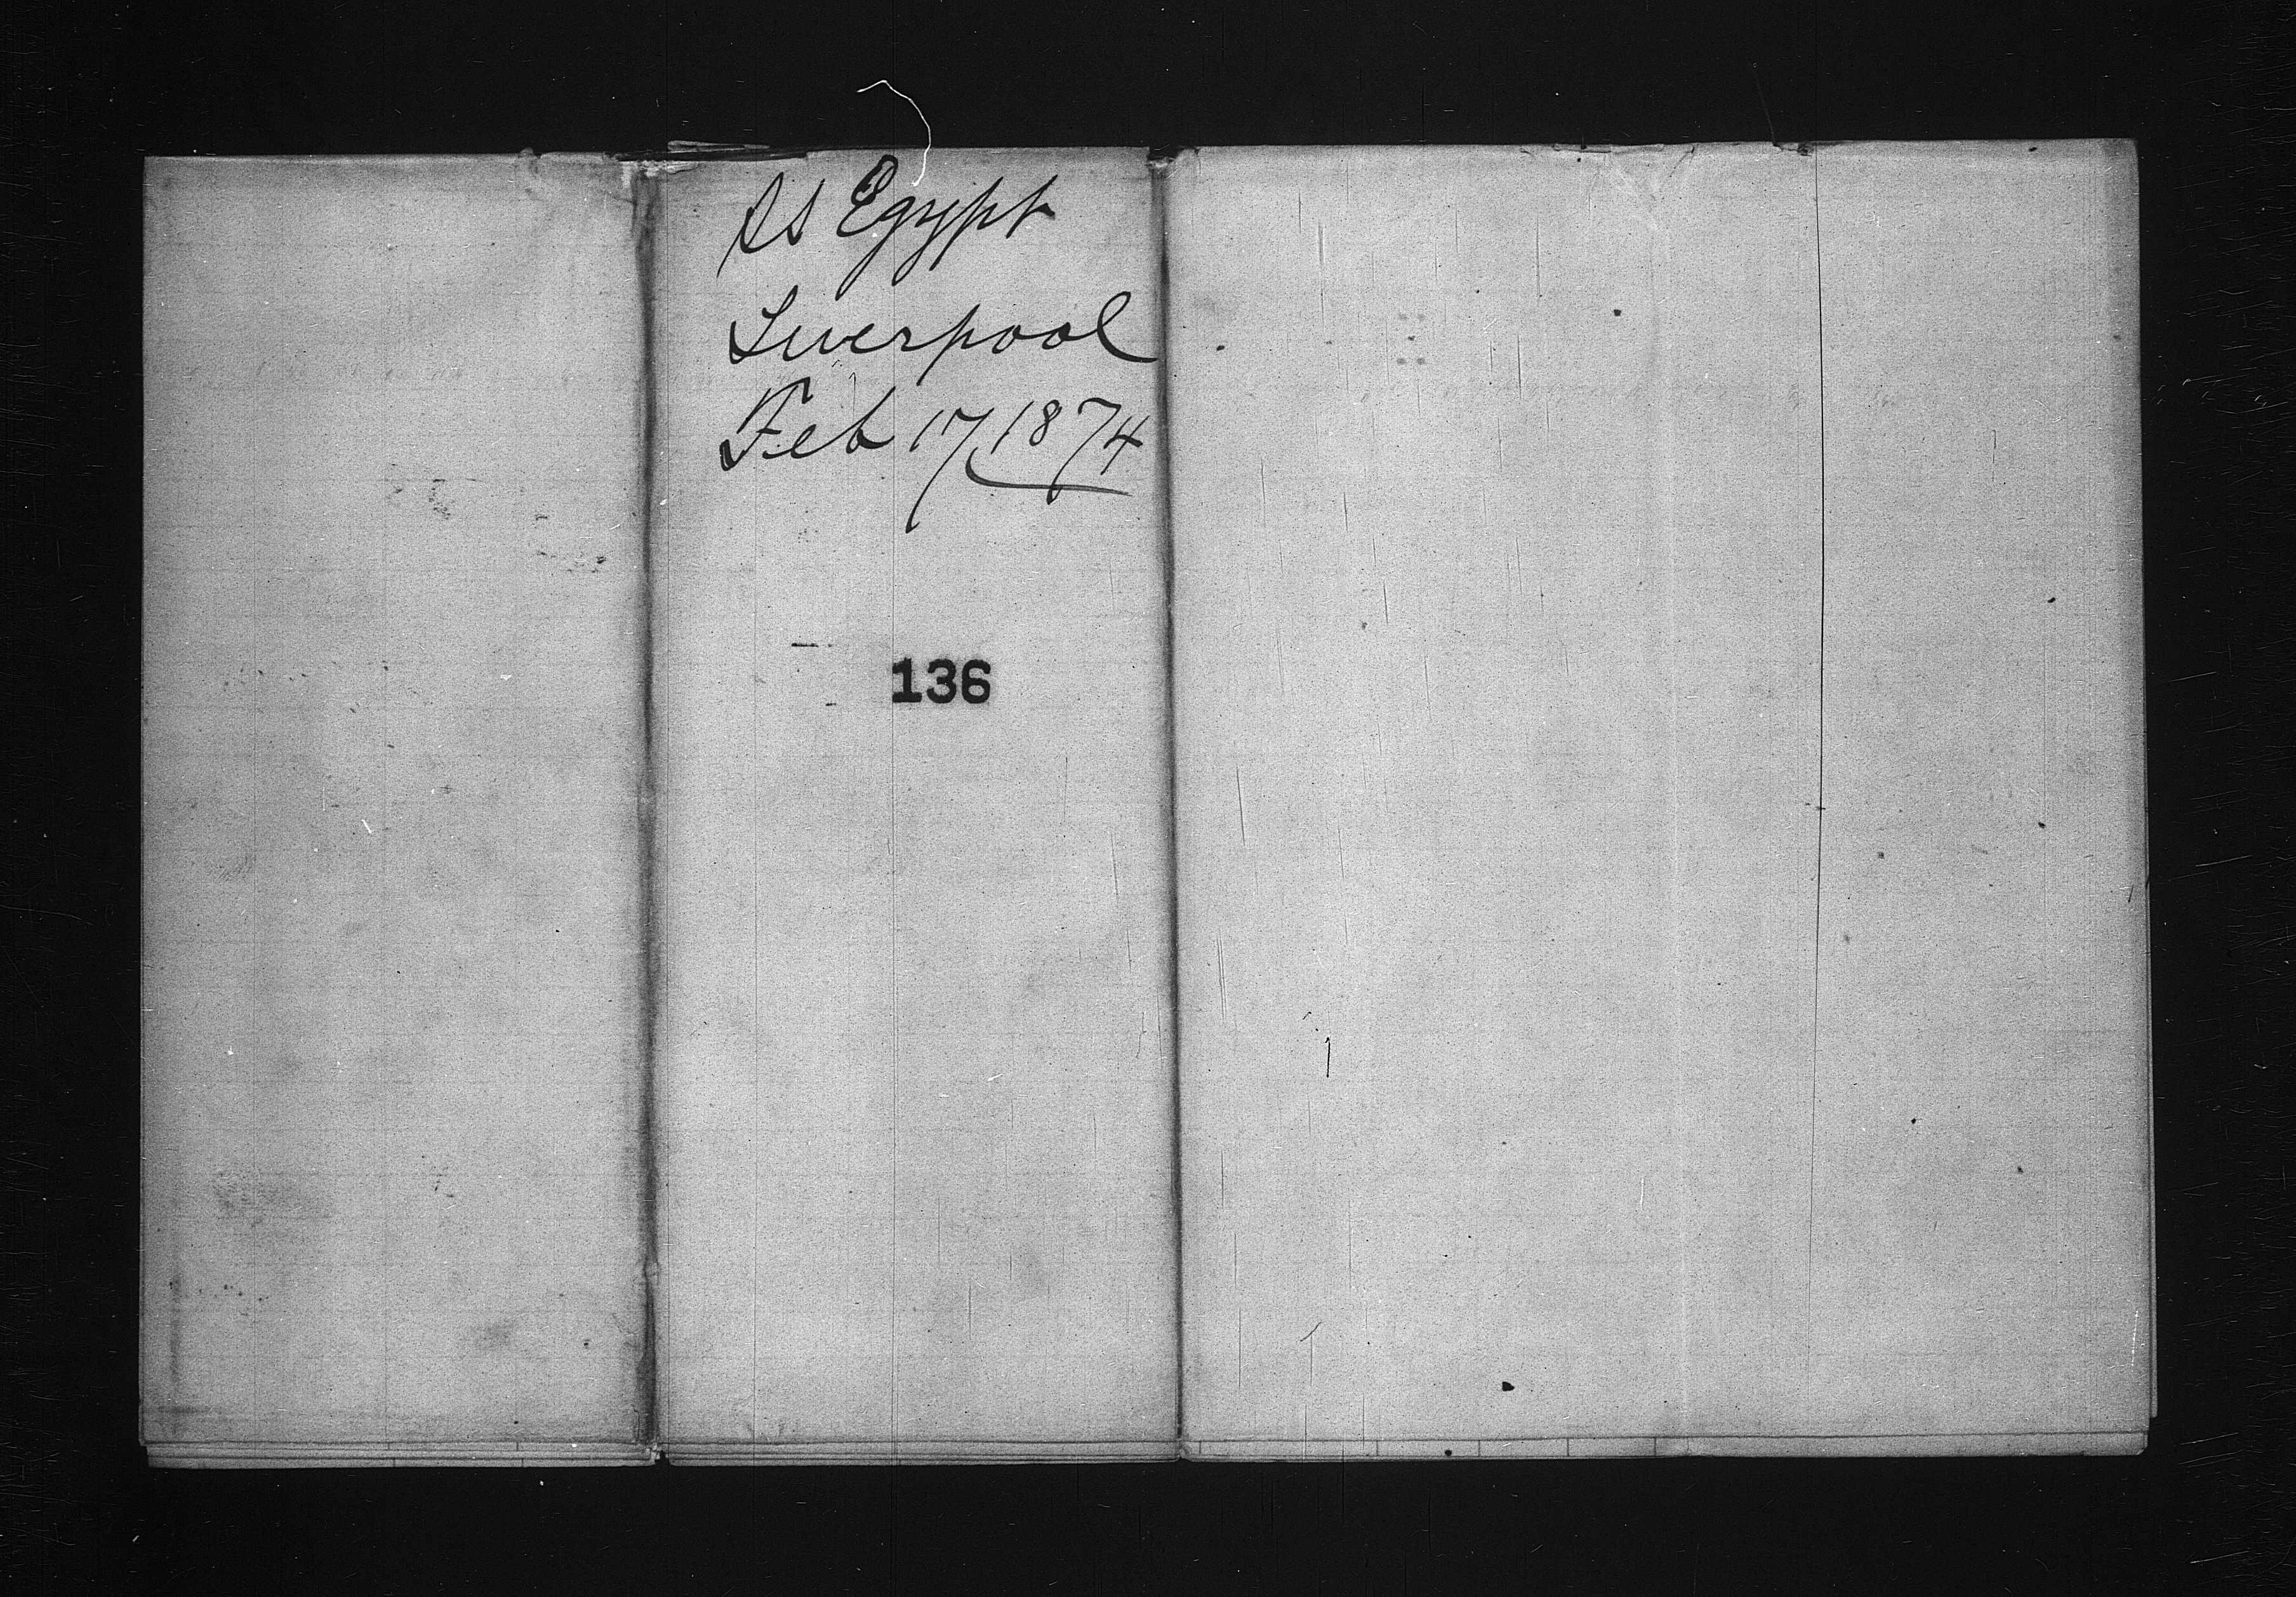 SS Egypt
Liverpool
Feb 17 1874
136